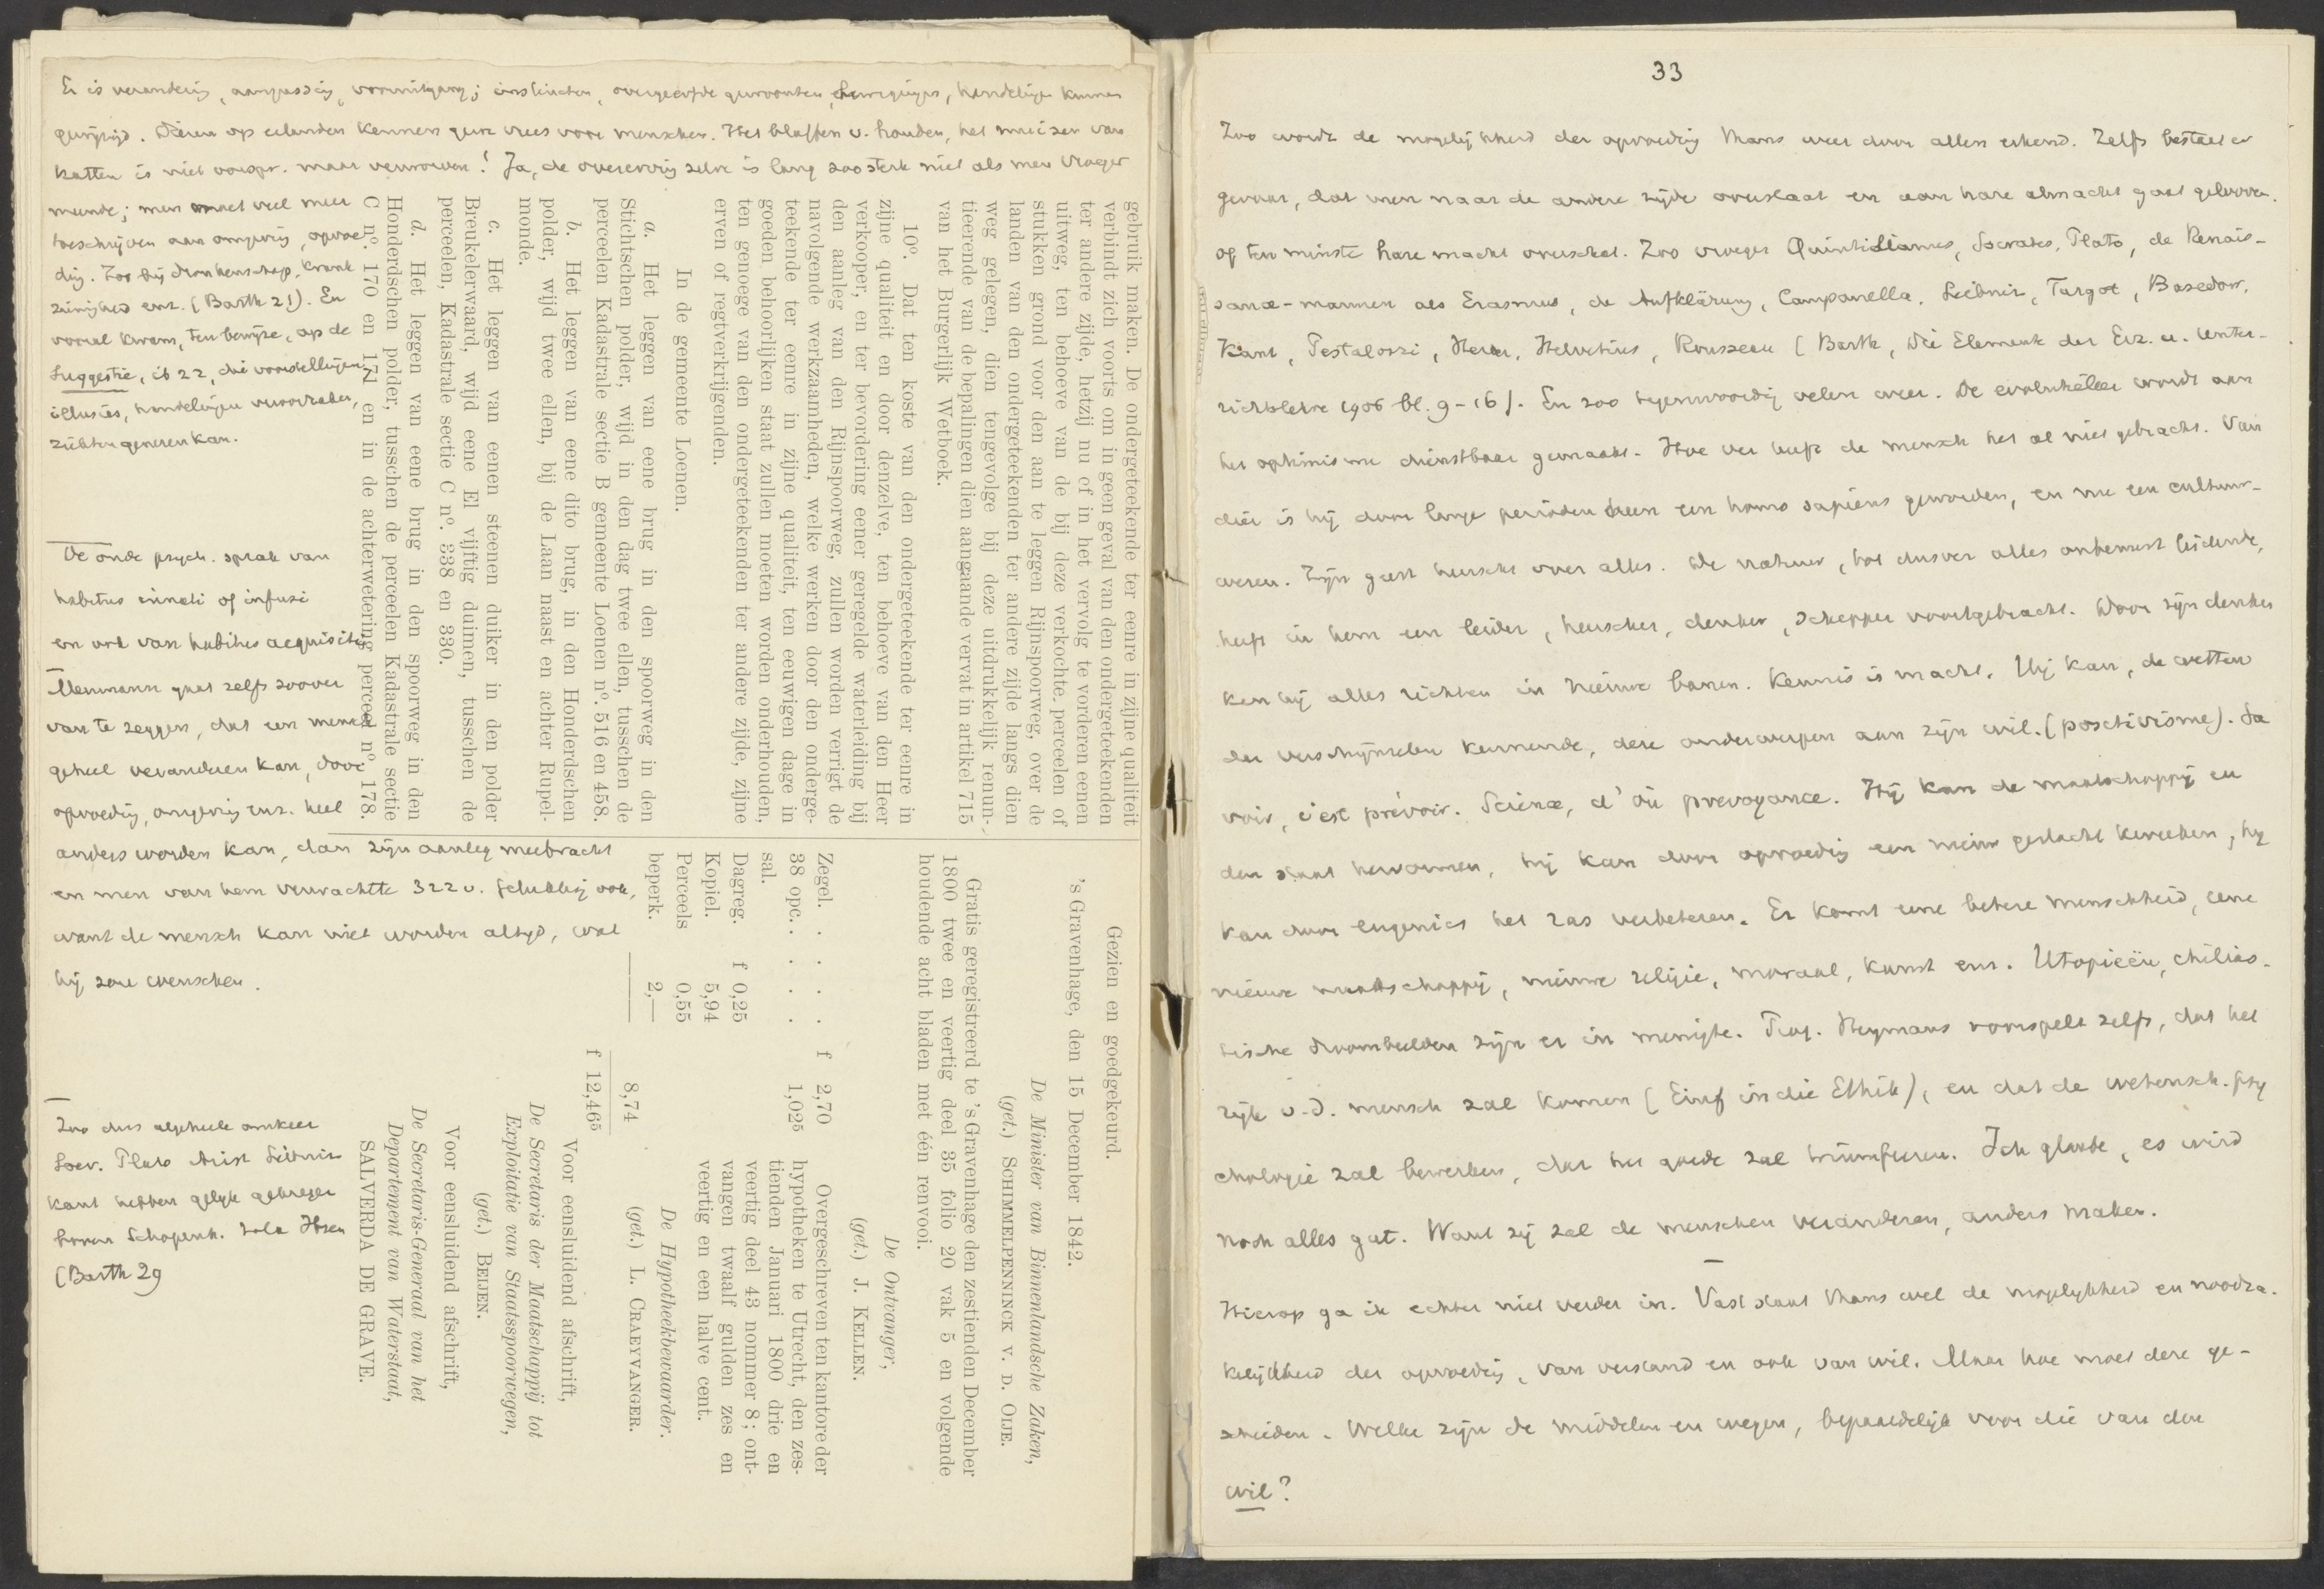 Er is verandering, aanpassing, vooruitgang; instincten, overgeërfde gewoonten, bewegingen, handelingen kunnen
gewijzigd. Dieren op eilanden kennen geen vrees voor menschen. Het blaffen v. honden, het muizen van
katten is niet oorspr. maar verworven! Ja, de overerving zelve is lang zoo sterk niet als men vroeger
meende; men moet veel meer
toeschrijven aan omgeving, opvoe-
ding. Zoo bij dronkenschap, krank
zinnigheid enz. (Barth 21). En
vooral kwam, ten bewijze, op de
Suggestie, ib 22, die voorstellingen,
illusies, handelingen veroorzaken,
ziekten genezen kan.
De oude psych. sprak van
habitus innati of infusi
en ook van habitus acquisiti
Meumann gaat zelfs zoover
van te zeggen, dat een mensch
geheel veranderen kan, door
opvoeding, omgeving enz. heel
anders worden kan, dan zijn aanleg meebracht
en men van hem verwachtte 322 v.
want de mensch kan niet worden altijd, wat
hij zou wenschen.
Zoo dus algeheele omkeer
Socr. Plato Arist Leibniz
Kant hebben gelijk gekregen
boven Schopenh. Zola Ibsen
(Barth 29
gebruik maken. De ondergeteekende ter eenre in zijne qualiteit
verbindt zich voorts om in geen geval van den ondergeteekenden
ter andere zijde, hetzij nu of in het vervolg te vorderen eenen
uitweg, ten behoeve van de bij deze verkochte perceelen of
stukken grond voor den aan te leggen Rijnspoorweg, over de
landen van den ondergeteekenden ter andere zijde langs dien
weg gelegen, dien tengevolge bij deze uitdrukkelijk renun-
tieerende van de bepalingen dien aangaande vervat in artikel 715
van het Burgerlijk Wetboek.
10°. Dat ten koste van den ondergeteekende ter eenre in
zijne qualiteit en door denzelve, ten behoeve van den Heer
verkooper, en ter bevordering eener geregelde waterleiding bij
den aanleg van den Rijnspoorweg, zullen worden verrigt de
navolgende werkzaamheden, welke werken door den onderge-
teekende ter eenre in zijne qualiteit, ten eeuwigen dage in
goeden behoorlijken staat zullen moeten worden onderhouden,
ten genoege van den ondergeteekenden ter andere zijde, zijne
erven of regtverkrijgenden.
In de gemeente Loenen.
a. Het leggen van eene brug in den spoorweg in den
Stichtschen polder, wijd in den dag twee ellen, tusschen de
perceelen Kadastrale sectie B gemeente Loenen n°. 516 en 458.
b. Het leggen van eene dito brug, in den Honderdschen
polder, wijd twee ellen, bij de Laan naast en achter Rupel-
monde.
c. Het leggen van eenen steenen duiker in den polder
Breukelerwaard, wijd eene El vijftig duimen, tusschen de
perceelen, Kadastrale sectie C n°. 338 en 330.
d. Het leggen van eene brug in den spoorweg in den
Honderdschen polder, tusschen de perceelen Kadastrale sectie
C n°. 170 en 171 en in de achterwetering perceel n°. 178.
Gezien en goedgekeurd.
's Gravenhage, den 15 December 1842.
De Minister van Binnenlandsche Zaken,
(get.) SCHIMMELPENNINCK V. D. OIJE.
Gratis geregistreerd te 's Gravenhage den zestienden December
1800 twee en veertig deel 35 folio 20 vak 5 en volgende
houdende acht bladen met één renvooi.
De Ontvanger,
(get.) J. KELLEN.
Zegel. . . . . f 2,70
38 opc. . . . . 1,025
sal.
Dagreg. f 0,25
Kopiel. 5,94
Perceels 0,55
beperk. 2,—
8,74
f 12,465
Overgeschreven ten kantore der
hypotheken te Utrecht, den zes-
tienden Januari 1800 drie en
veertig deel 43 nommer 8; ont-
vangen twaalf gulden zes en
veertig en een halve cent.
De Hypotheekbewaarder.
(get.) L. CRAEYVANGER.
Voor eensluidend afschrift,
De Secretaris der Maatschappij tot
Exploitatie van Staatsspoorwegen,
(get.) BEIJEN.
Voor eensluidend afschrift,
De Secretaris-Generaal van het
Departement van Waterstaat,
SALVERDA DE GRAVE.
33
Zoo wordt de mogelijkheid der opvoeding thans weer door allen erkend. Zelfs bestaat er
gevaar, dat men naar de andere zijde overslaat en aan hare almacht gaat gelooven.
of ten minste hare macht overschat. Zoo vroeger Quintilianus, Socrates, Plato, de Renais-
sance-mannen als Erasmus, de Aufklärung, Campanella, Leibniz, Turgot, Basedow,
Kant, Pestalozzi, Herder, Helvetius, Rousseau (Barth, Die Elemente der Erz. u. Unter-
richtslehre 1906 bl. 9-16). En zoo tegenwoordig velen weer. De evolutieleer wordt aan
het optimisme dienstbaar gemaakt. Hoe ver heeft de mensch het al niet gebracht. Van
dier is hij door lange perioden heen een homo sapiens geworden, en nu een cultuur-
wezen. Zijn geest heerscht over alles. De natuur, tot dusver alles onbewust leidende,
heeft in hem een leider, heerscher, denker, schepper voortgebracht. Door zijn denken
kan hij alles richten in nieuwe banen. Kennis is macht. Hij kan, de wetten
der verschijnselen kennende, deze onderwerpen aan zijn wil. (positivisme). Sa
voir, c'est prévoir. Science, d'où prevoyance. Hij kan de maatschappij en
den staat hervormen, hij kan door opvoeding een nieuw geslacht kweeken, hij
kan door eugenics het ras verbeteren. Er komt eene betere menschheid, eene
nieuwe maatschappij, nieuwe religie, moraal, kunst enz. Utopieën, chilias-
tische droombeelden zijn er in menigte. Prof. Heymans voorspelt zelfs, dat het
rijk v.d. mensch zal komen (Einf in die Ethik), en dat de wetensch. psy
chologie zal bewerken, dat het goede zal triumfeeren. Ich glaube, es wird
noch alles gut. Want zij zal de menschen veranderen, anders maken.
Hierop ga ik echter niet verder in. Vast staat thans wel de mogelijkheid en noodza-
kelijkheid der opvoeding, van verstand en ook van wil. Maar hoe moet deze ge-
schieden. Welke zijn de middelen en wegen, bepaaldelijk voor die van den
wil?